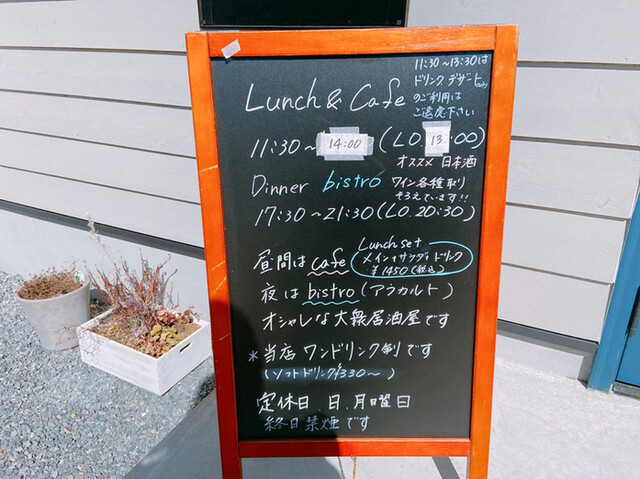 11:30~13:30は
ドリンクデザートのみ
のご利用は
ご遠慮下さい
Lunch & Cafe
11:30~14:00 (L.O. 13:00)
オススメ 日本酒
Dinner bistro ワイン各種取り
そろえています!!
17:30~21:30 (L.O. 20:30)
Lunch set
メイン+サラダ+ドリンク
¥1450(税込)
昼間は cafe
夜は bistro (アラカルト)
オシャレな大衆居酒屋です
*当店 ワンドリンク制です
(ソフトドリンク¥330~)
定休日 日、月曜日
終日禁煙です